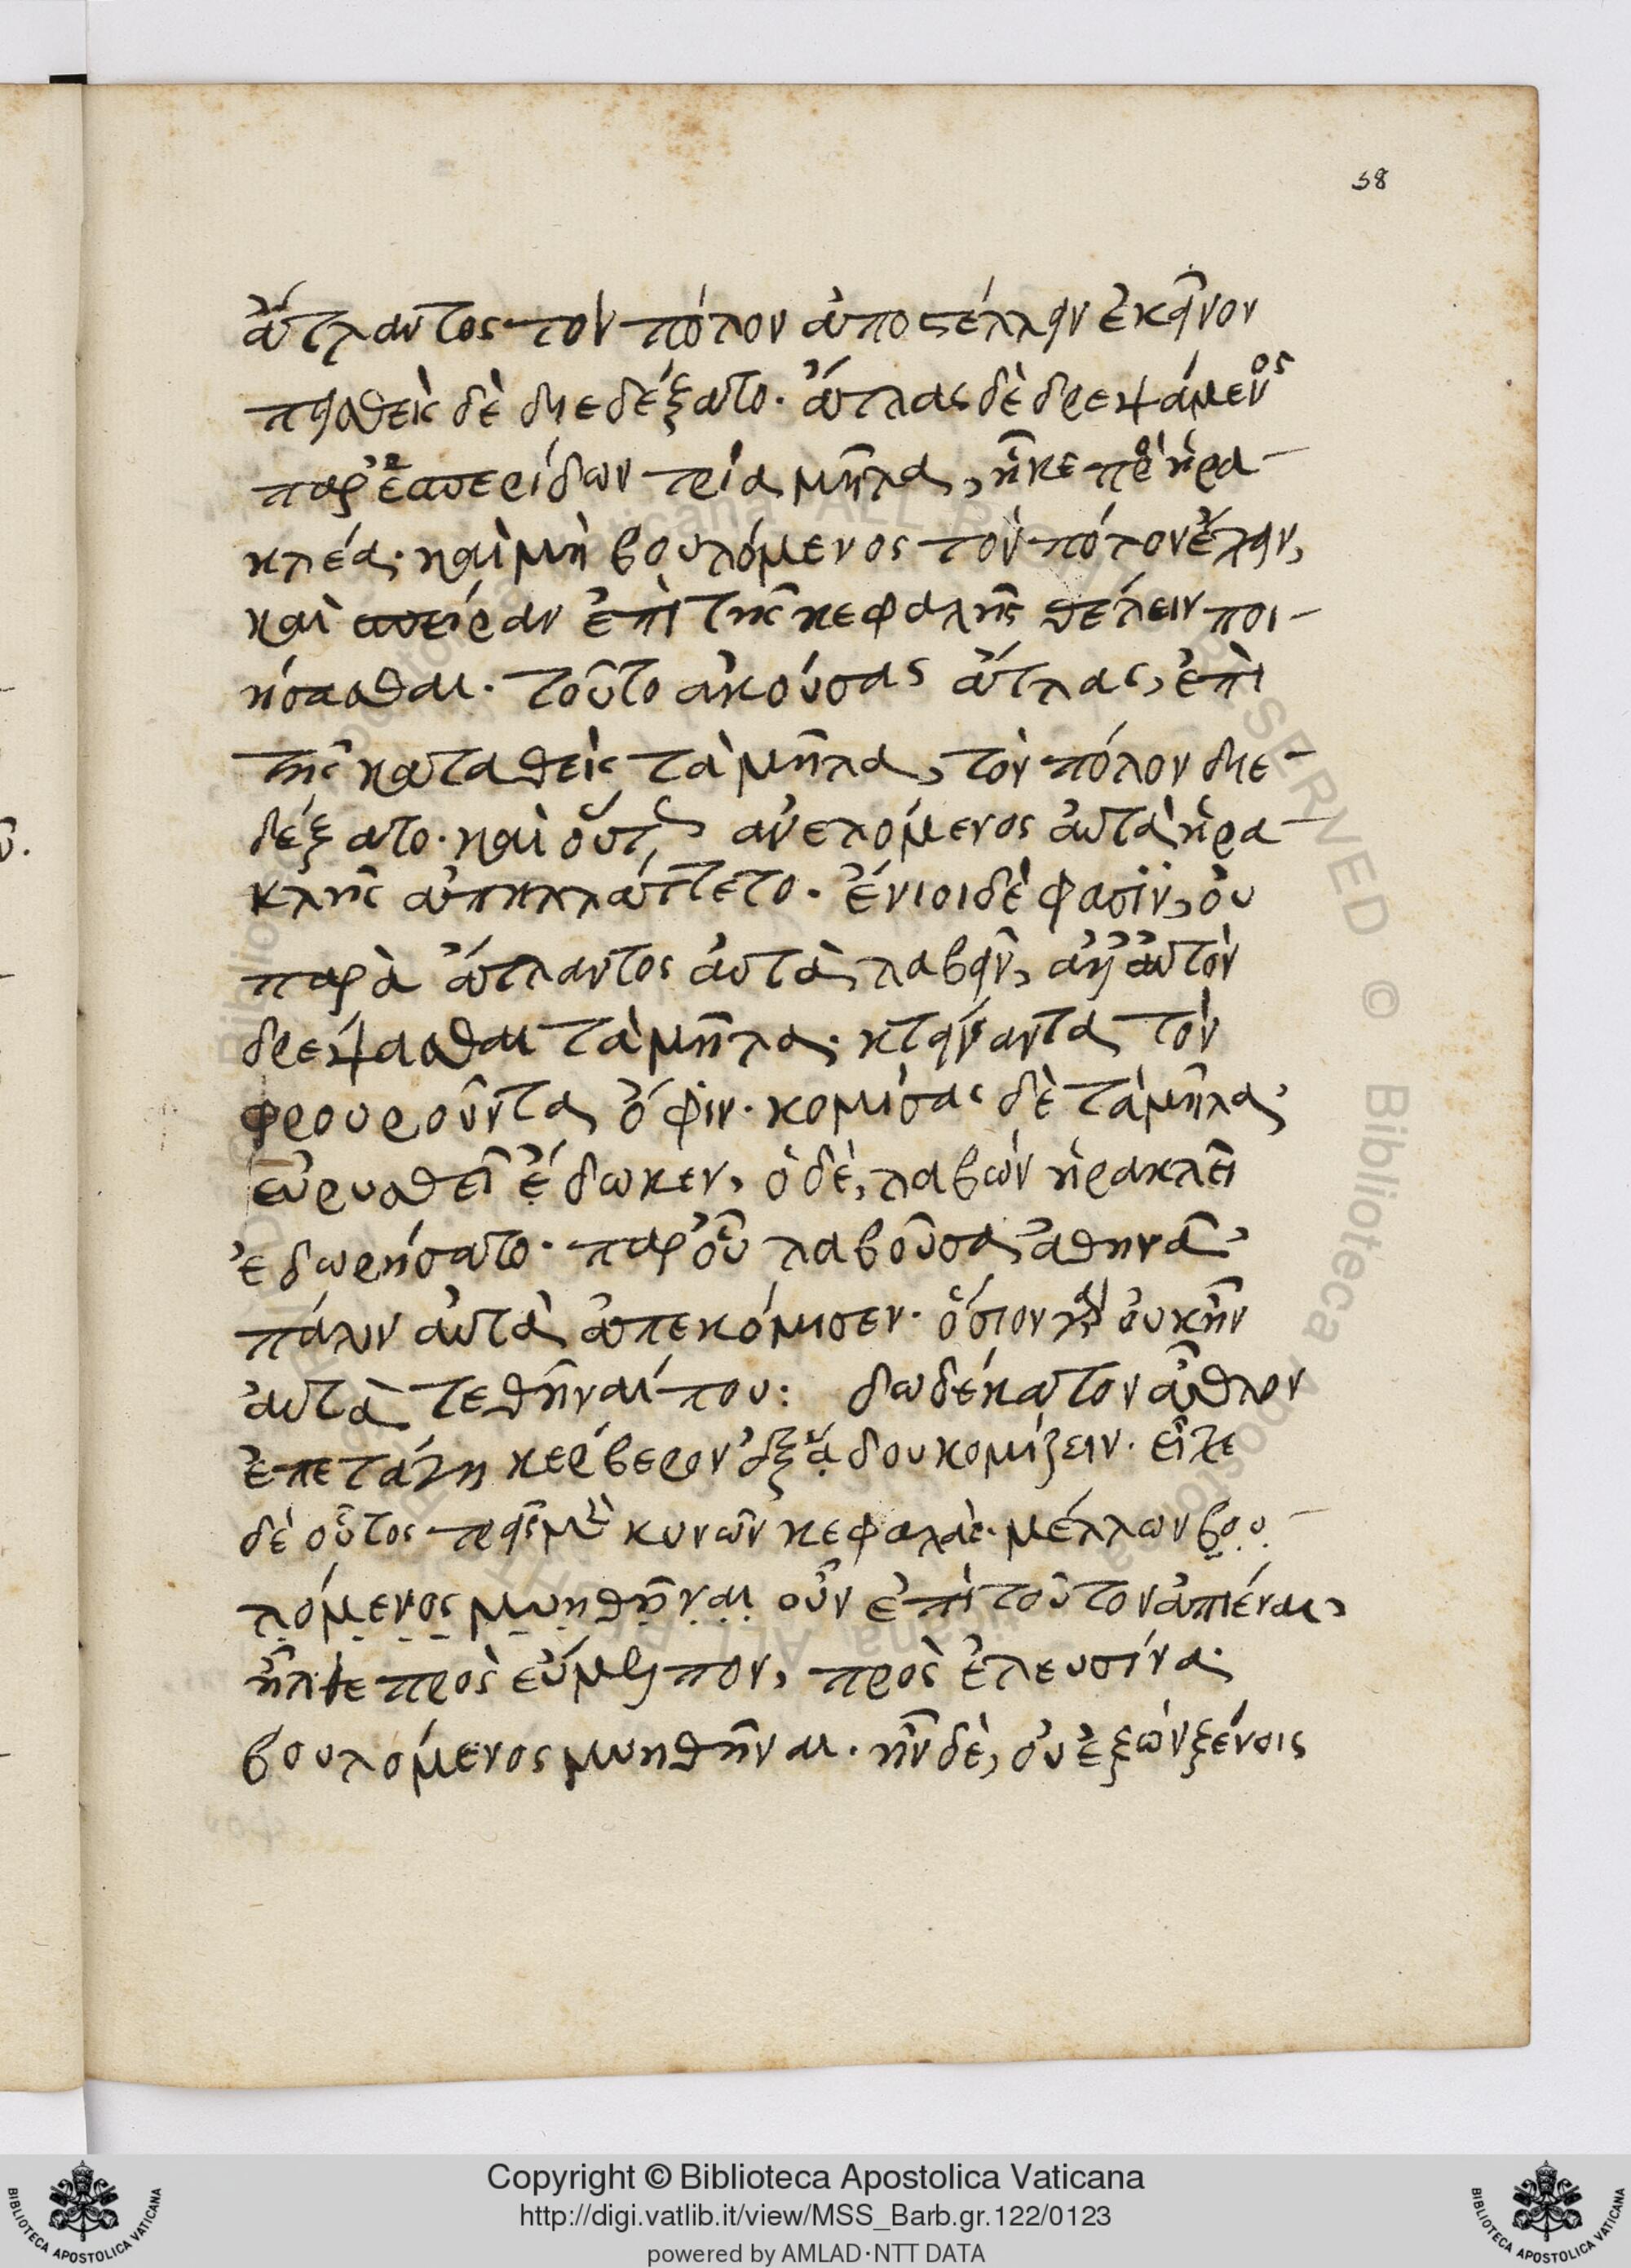 58
ἄτλαντος τὸν πόλον ἀποστέλλειν ἐκεῖνον
πεισθεὶς δὲ διεδέξατο. ἄτλας δὲ δρεψάμενος
παρ' ἑσπερίδων τρία μῆλα, ἧκε πρὸς ἡρα-
κλέα. καὶ μὴ βουλόμενος τὸν πόλον ἔχειν,
καὶ σπείραν ἐπὶ τῆς κεφαλῆς θέλειν ποι-
ήσασθαι. τοῦτο ἀκούσας ἄτλας, ἐπὶ
τῆς καταθεὶς τὰ μῆλα, τὸν πόλον διε-
δέξατο. καὶ οὕτως ἀνελόμενος αὐτὰ ἡρα-
κλῆς ἀπηλλάττετο. ἔνιοι δέ φασϊν, οὐ
παρὰ ἄτλαντος αὐτὰ λαβεῖν, ἀλλ' αὐτὸν
δρέψασθαι τὰ μῆλα. κτείναντα τὸν
φρουροῦντα ὄφιν. κομίσας δὲ τὰ μῆλα,
εὐρυσθεῖ ἔδωκεν, ὁ δὲ, λαβὼν ἡρακλεῖ
ἐδωρήσατο. παρ' οὗ λαβοῦσα ἀθηνᾶ,
πάλιν αὐτὰ ἀπεκόμισεν. ὅσιον γὰρ οὐκ ἦν
αὐτὰ τεθῆναί που: δωδέκατον ἆθλον
ἐπετάγη κέρβερον ἐξ ἅδου κομίζειν. εἶχε
δὲ οὗτος τρεῖς μὲν κυνῶν κεφαλὰς. μέλλων βου-
λόμενος μυηθῆναι οὖν ἐπὶ τοῦτον ἀπιέναι,
ἦλθε πρὸς εὔμολπον, πρὸς ἐλευσίνα.
βουλόμενος μυηθῆναι. ἦν δὲ, οὐ ἐξὼν ξένοις
Copyright © Biblioteca Apostolica Vaticana
http://digi.vatlib.it/view/MSS_Barb.gr.122/0123
powered by AMLAD·NTT DATA
BIBLIOTECA APOSTOLICA VATICANA
BIBLIOTECA APOSTOLICA VATICANA